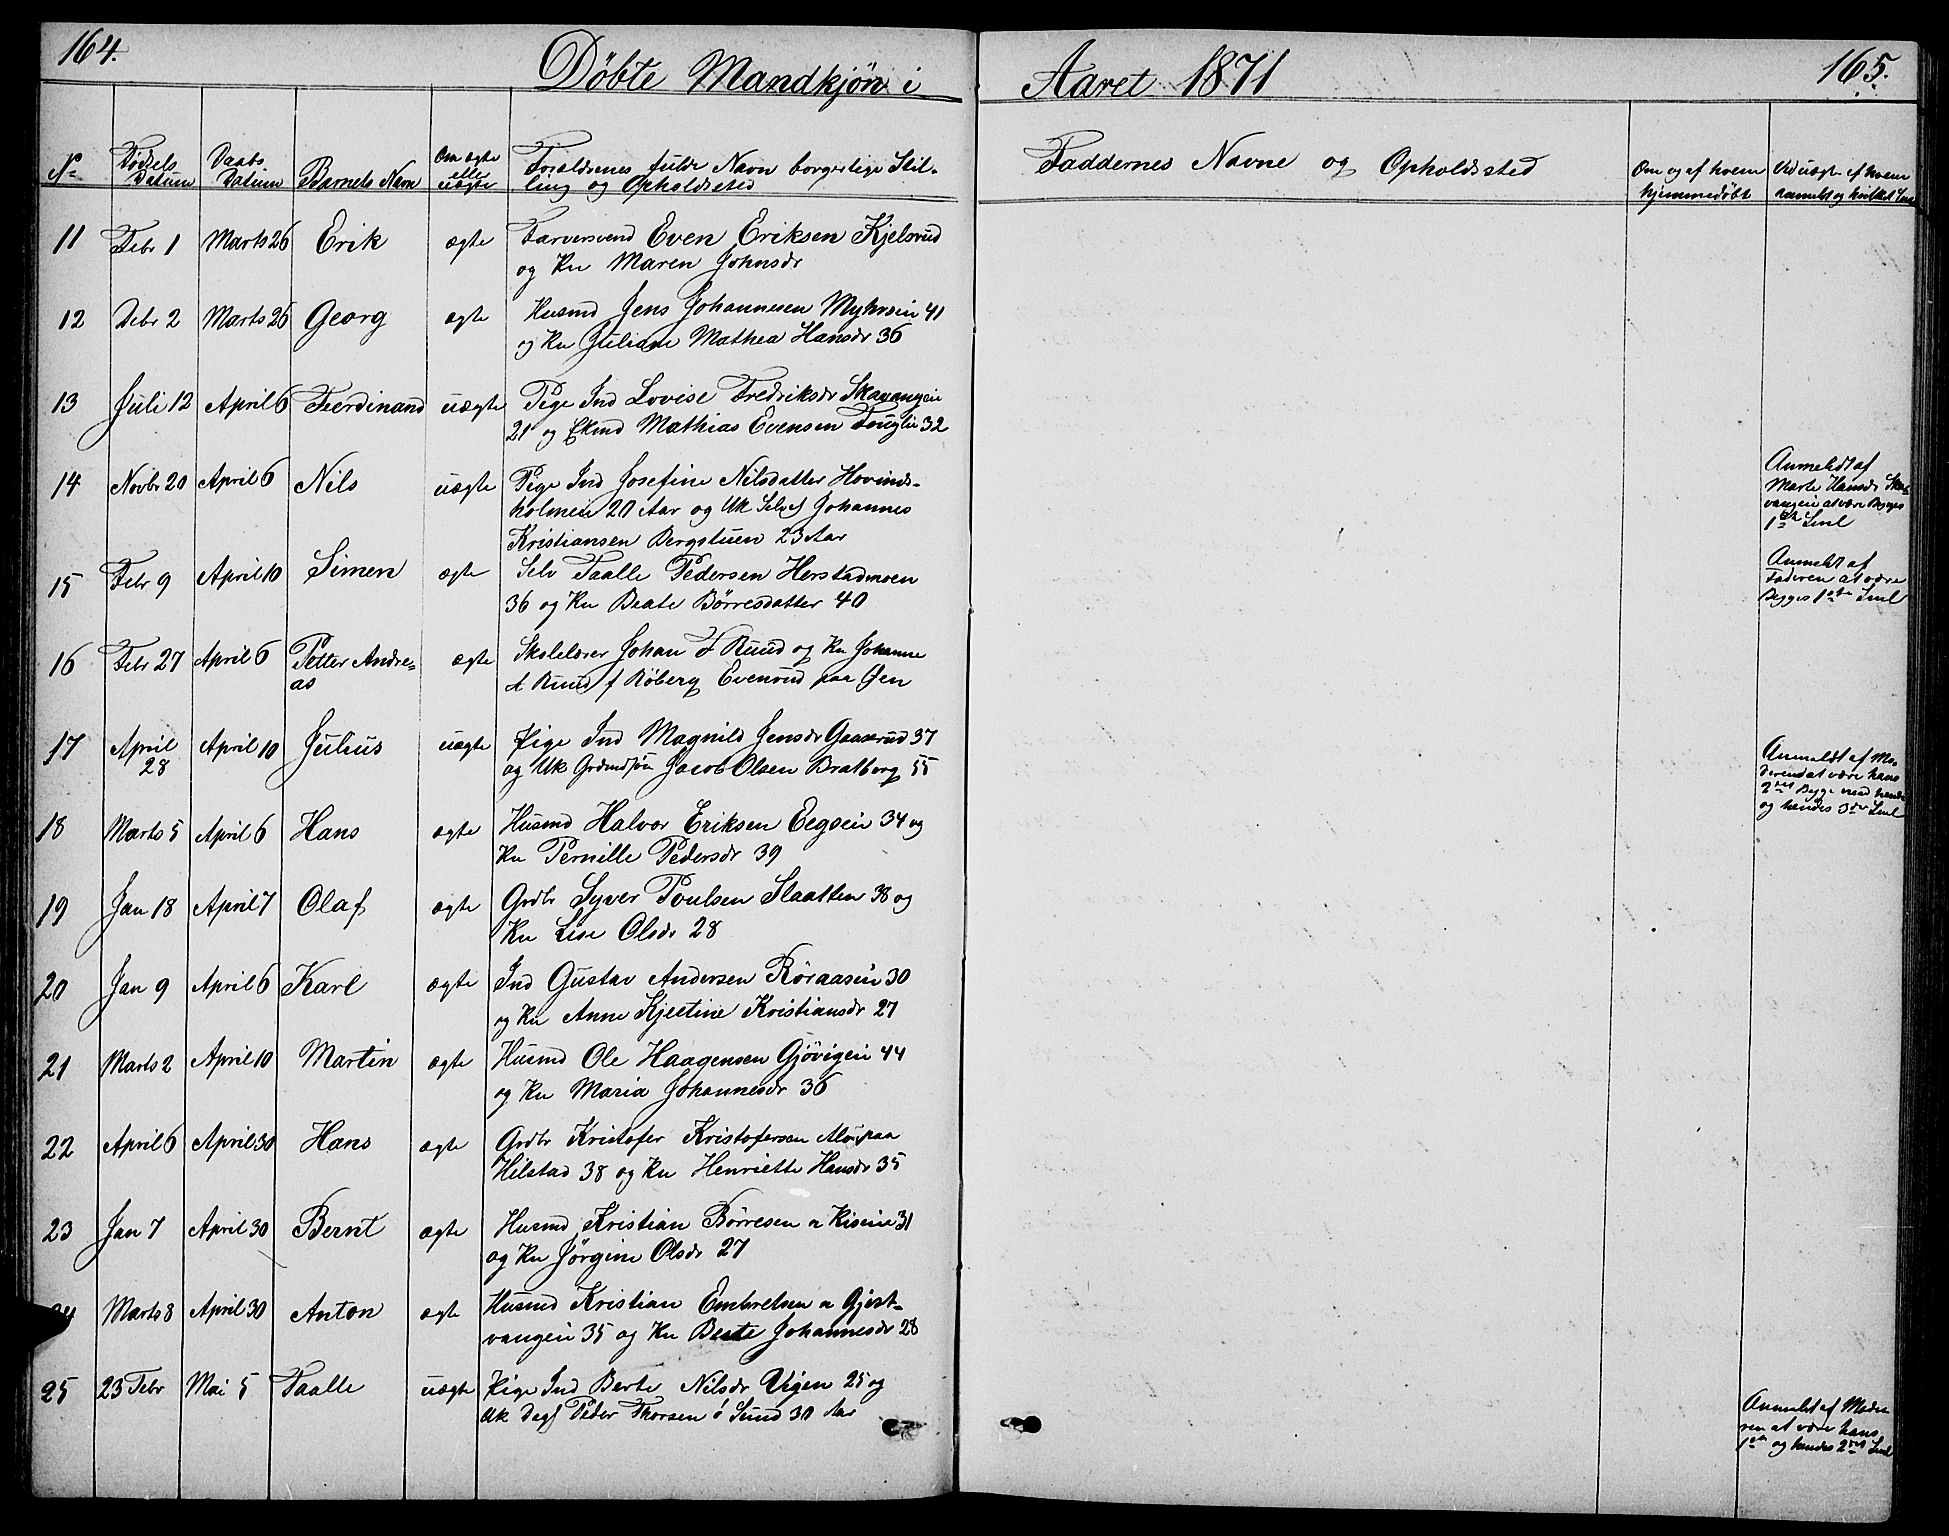 164.
Döbte Mandkjön i
Aaret 1871
165.
No
Födsels Datum
Daabs Datum
Barnets Navn
Om ægte eller uægte
Forældrenes fulde Navn borgerlige Stil-
ling og Opholdssted
Faddernes Navne og Opholdssted
Om og af hvem
hjemmedöbt
Ved uægte af hvem
anmeldt og hvilket Leie
11 Febr 1 Marts 26 Erik ægte Farversvend Even Eriksen Kjelsrud
og Ku Maren Johnsdr
12 Febr 2 Marts 26 Georg ægte Husmd Jens Johannesen Myhrein 41
og Ku Juliane Mathea Hansdr 36
13 Juli 12 April 6 Ferdinand uægte Pige Ind Lovise Fredriksdr Skavangen
21 og Ekmd Mathias Evensen 32
14 Novbr 20 April 6 Nils uægte Pige Ind Josefine Nilsdatter Hovinds-
holmen 20 Aar og Uk Selvs Johannes
Kristiansen Bergstuen 23 Aar
Anmeldt af
Marte Hansdr Ska-
vangein at være Begges
1ste Leiel
15 Febr 9 April 10 Simen ægte Selv Paalle Pedersen Herstadmoen
36 og Ku Beate Börresdatter 40
Anmeldt af
Faderen at være
Begges 1ste Leiel
16 Febr 27 April 6 Petter Andre-
as ægte Skolelærer Johan F Ruud og Ku Johanne
A Ruud f Röberg Evenrud paa Gen
17 April
28 April 10 Julius uægte Pige Ind Magnild Jensdr Gaaserud 37
og Uk Grdmdsön Jacob Olsen Bratberg 55
Anmeldt af Mo-
deren at være hans
2det Begge med hende
og hendes 3die Leiel
18 Marts 5 April 6 Hans ægte Husmd Halvor Eriksen Eegsein 34 og
Ku Pernille Pedersdr 39
19 Jan 18 April 7 Olaf ægte Grdbr Syver Poulsen Slaatten 38 og
Ku Lise Olsdr 28
20 Jan 9 April 6 Karl ægte Ind Gustav Andersen Röraasein 30
og Ku Anne Kjestine Kristiansdr 27
21 Marts 2 April 10 Martin ægte Husmd Ole Haagensen Gjövigein 44
og Ku Maria Johannesdr 36
22 April 6 April 30 Hans ægte Grdbr Kristofer Kristofersen Alm paa
Hilstad 38 og Ku Henriette Hansdr 35
23 Jan 7 April 30 Bernt ægte Husmd Kristian Börresen n Kisein 31
og Ku Jörgine Olsdr 27
24 Marts 8 April 30 Anton ægte Husmd Kristian Embretsen n Gjest-
vangein 35 og Ku Beate Johannesdr 28
25 23 Febr Mai 5 Paalle uægte Pige Ind Berte Nilsdr Vigen 25 og
Uk Dags Peder Thorsen i Sund 30 Aar
Anmeldt af Mode-
ren at være hans
1ste og hendes 2det Leiel